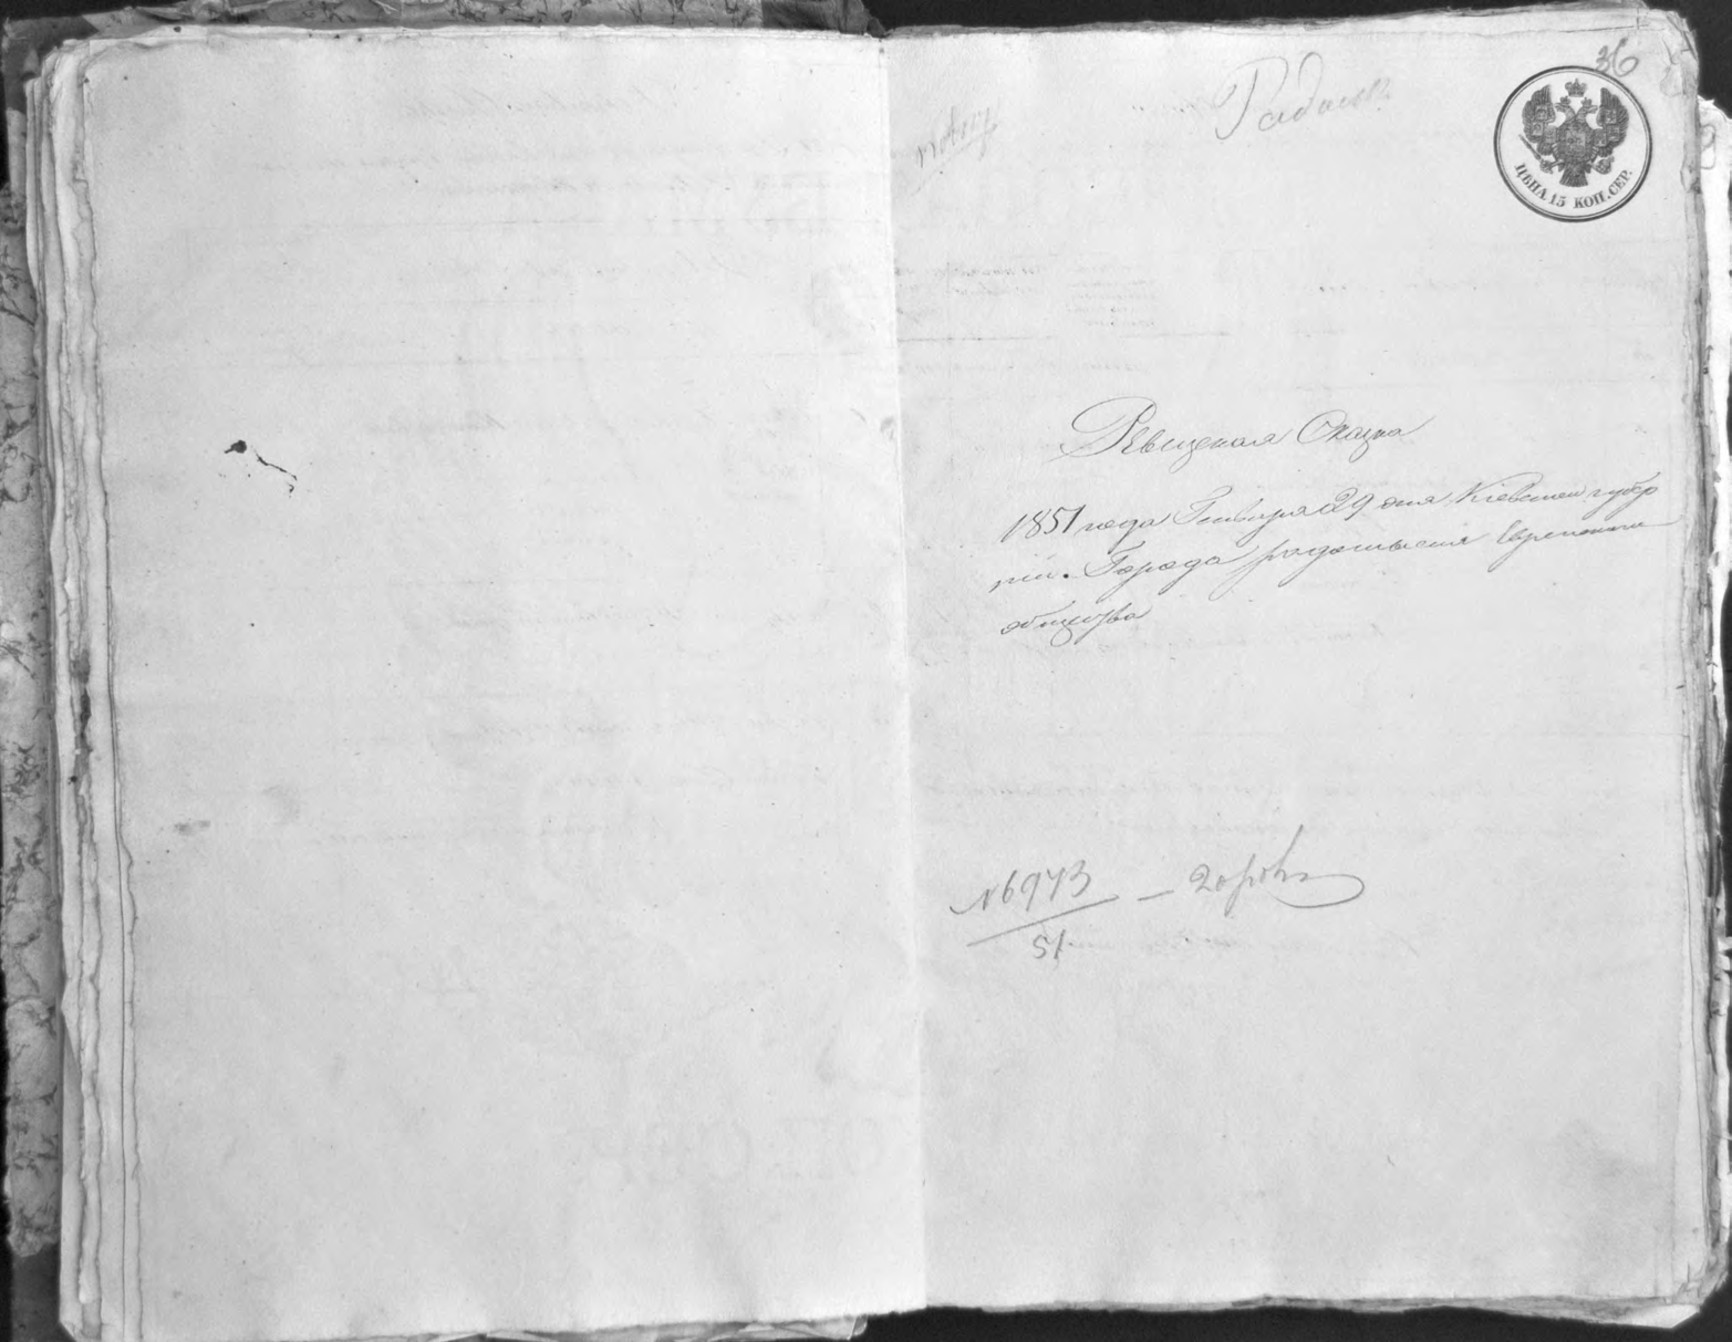 36
Радом
ЦѢНА 15 КОП. СЕР.
Ревизская Сказка
1851 года Генваря 29 дня Кіевской губер
ніи. Города радомысля Еврейскаго
общества
№ 6973
51